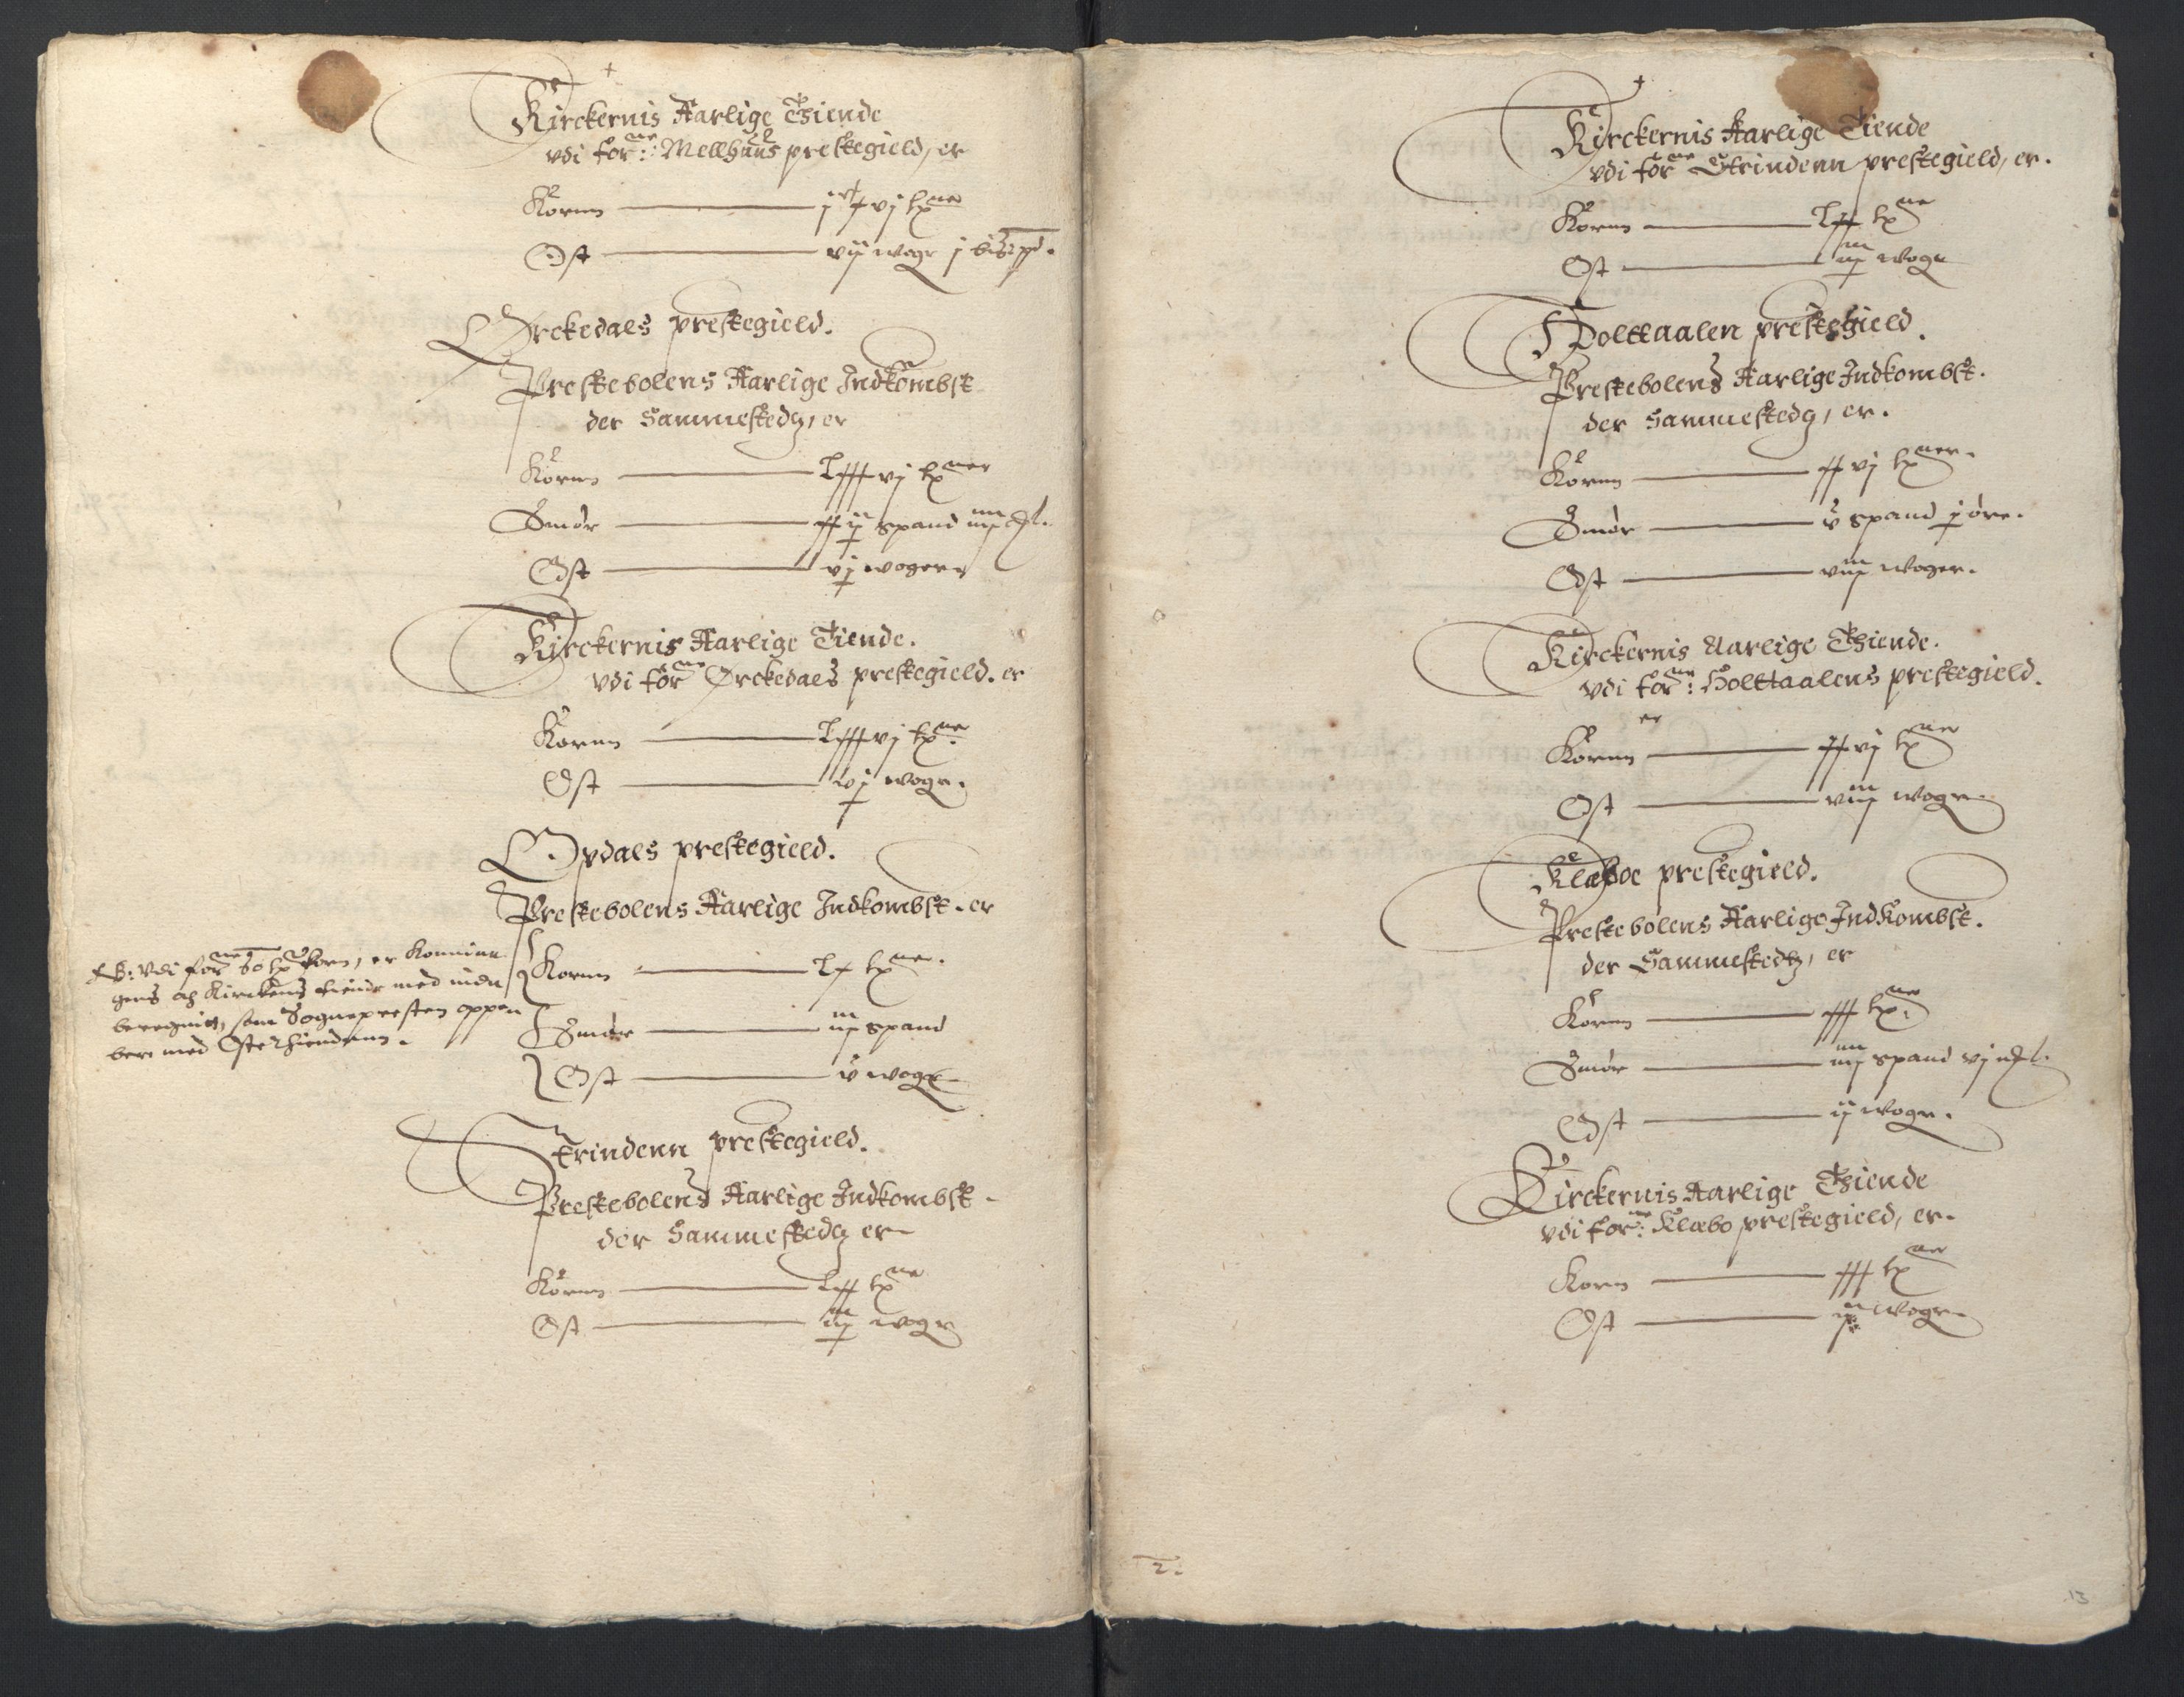 Kirckernis Aarlige Thiende
vdi forne: Mellhuus prestegield, er
Kornn — jc x vj tpner
Ost — vij wogr j bismerpd.
Ørckedals prestegield.
Prestebolens Aarlige Indkombst
der Sammestedz, er
Kornn — Lxxx vj tpner
Smør — xx ij spand iiij
Ost — vj woger
Kirckernis Aarlige Tiende.
vdi forne Ørckedals prestegield. er
Kornn — Lxxx vj tpner
Ost — vj wogr.
Opdals prestegield.
Prestebolens Aarlige Indkombst. er
NB: Vdi forne 60 tpr korn, er Konnin-
gens och Kirckens tiende med inden
beregnit, som Sognepresten oppe-
bere med Ostethiendenn.
Kornn — Lx tpner.
Smør — iij spand
Ost — v wogr
Strindenn prestegield.
Prestebolens Aarlige Indkombst.
der Sammestedz er
Kornn — Lxx tpner
Ost — iij wogr
Kirckernis Aarlige Tiende
vdi forne Strindenn prestegield, er.
Kornn — Lxx tpne
Ost — iij wogr
Holttaalen prestegield.
Prestebolens Aarlige Indkombst.
der Sammestedz, er.
Kornn — xx vj tpner.
Smør — v spand j øre.
Ost — viij woger.
Kirckernis Aarlige Thiende.
vdi forne: Holttaalens prestegield.
er
Kornn — xx vj tpner
Ost — viij wogr
Klæboe prestegield.
Prestebolens Aarlige Indkombst.
der Sammestedtz, er
Kornn — xxx tpner
Smør — iiij spand vj
Ost — ij wogr.
Kirckernis Aarlige Thiende
vdi forne: Klæbo prestegield, er.
Korn — xxx tpner
Ost — ij wogr
2.
13